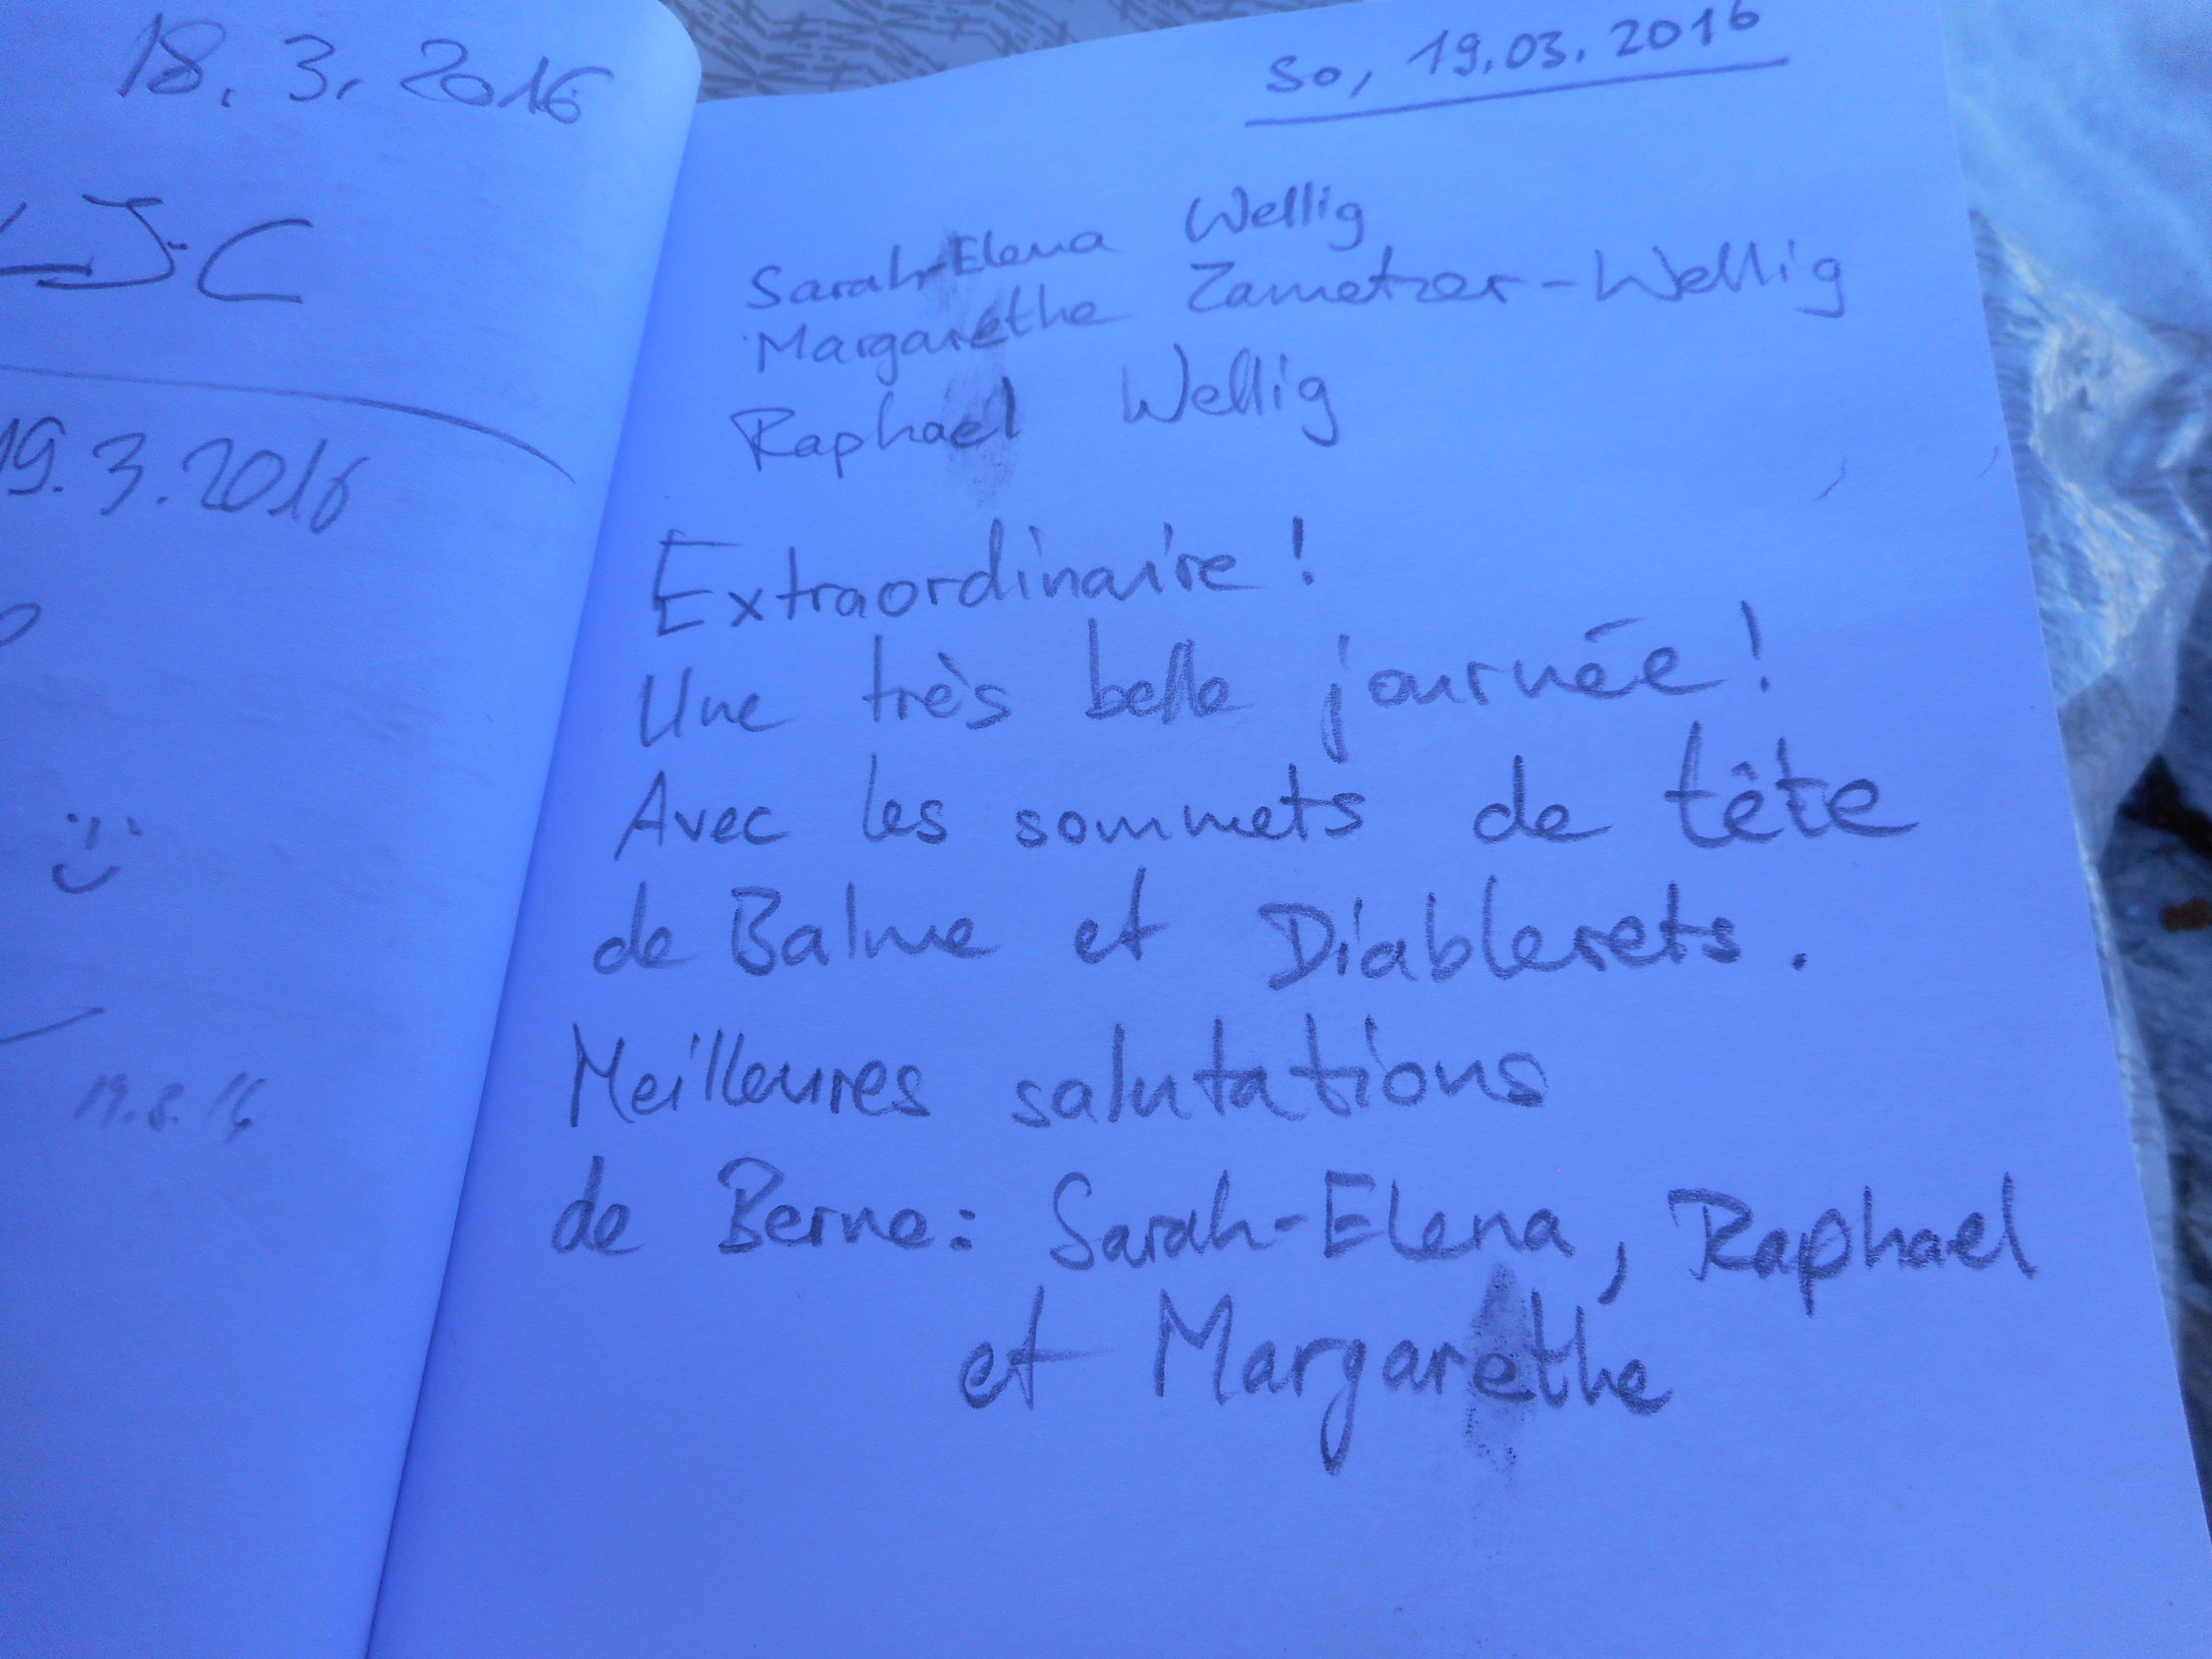 18.3.2016
J-C
19.3.2016
19.3.16
So, 19.03.2016
Sarah-Elena Wellig
Margarethe Zametzer-Wellig
Raphael Wellig
Extraordinaire!
Une très belle journée!
Avec les sommets de tête
de Balme et Diablerets.
Meilleures salutations
de Berne: Sarah-Elena, Raphael
et Margarethe